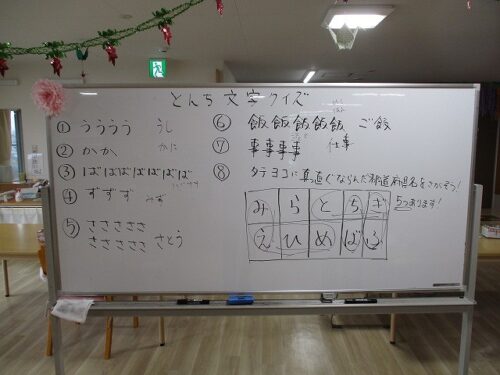 とんち文字クイズ
① うううう うし
② かか かに
③ ばばばばばばばば
④ ずずず みず
⑤ さささささ
さささささ さとう
⑥ 飯飯飯飯飯 ご飯
⑦ 事事事事 仕事
⑧ タテヨコに真っ直ぐならんだ都道府県名をさがそう!
5つあります!
み ら と ち ぎ
え ひ め ば ふ